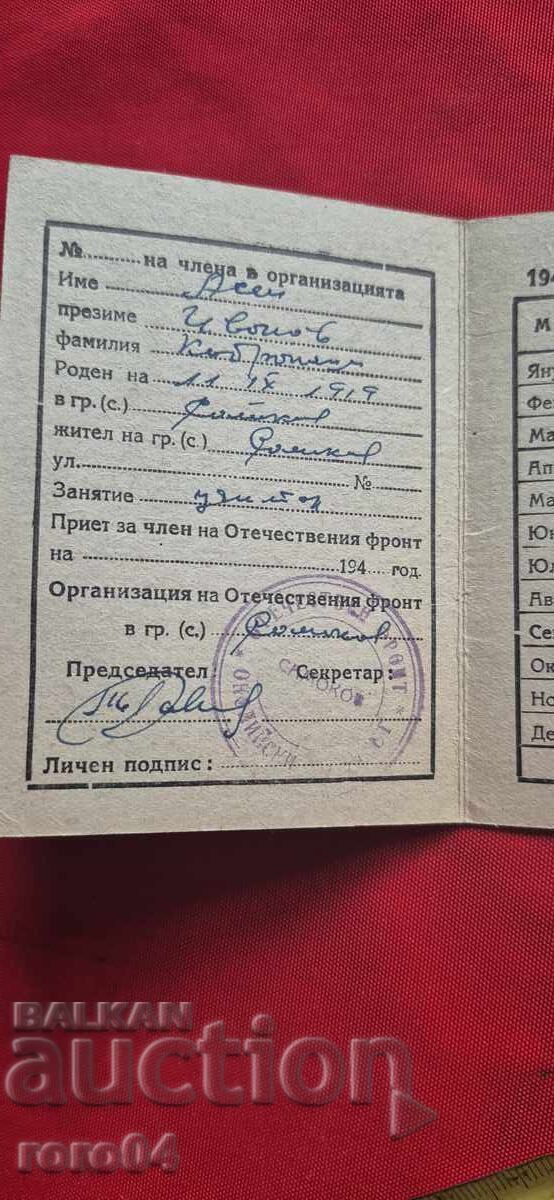 № на члена в организацията
Име Асен
презиме Иванов
фамилия
Роден на 11 IX 1919
в гр. (с.) Самоков
жител на гр. (с.) Самоков
ул. №
Занятие
Приет за член на Отечествения фронт
на 194 год.
Организация на Отечествения фронт
в гр. (с.) Самоков
Председател Секретар:
ОТЕЧЕСТВЕН ФРОНТ * ГР.
САМОКОВ
Личен подпис:
194
М
Яну
Фе
Ма
Ап
Ма
Юн
Юл
Ав
Се
Ок
Но
Де
BALKAN
auction
roro04